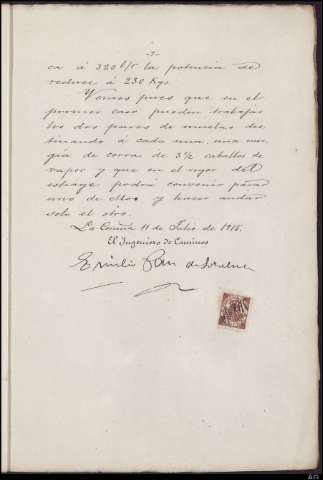 -7-
ca á 320 l/s la potencia se
reduce á 230 Kgs.
Vemos pues que en el
primer caso pueden trabajar
los dos pares de muelas des
tinando á cada una, una ener
gía de cerca de 3½ caballos de
vapor y que en el rigor del
estiage podrá convenir parar
uno de ellos y hacer andar
solo el otro.
La Coruña 11 de Julio de 1915.
El Ingeniero de Caminos
Emilio Pan de